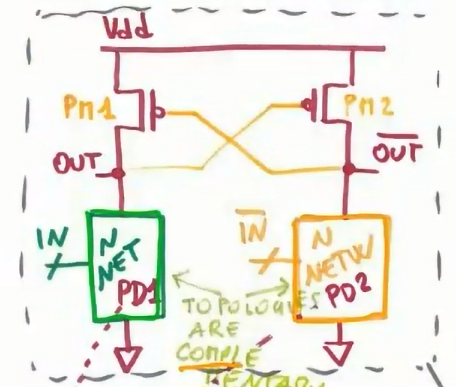 Vdd
PM1
PM2
OUT
O̅U̅T̅
IN
N
NET
PD1
I̅N̅
N
NETW
PD2
TOPOLOGIES
ARE
COMPLE
MENTARY